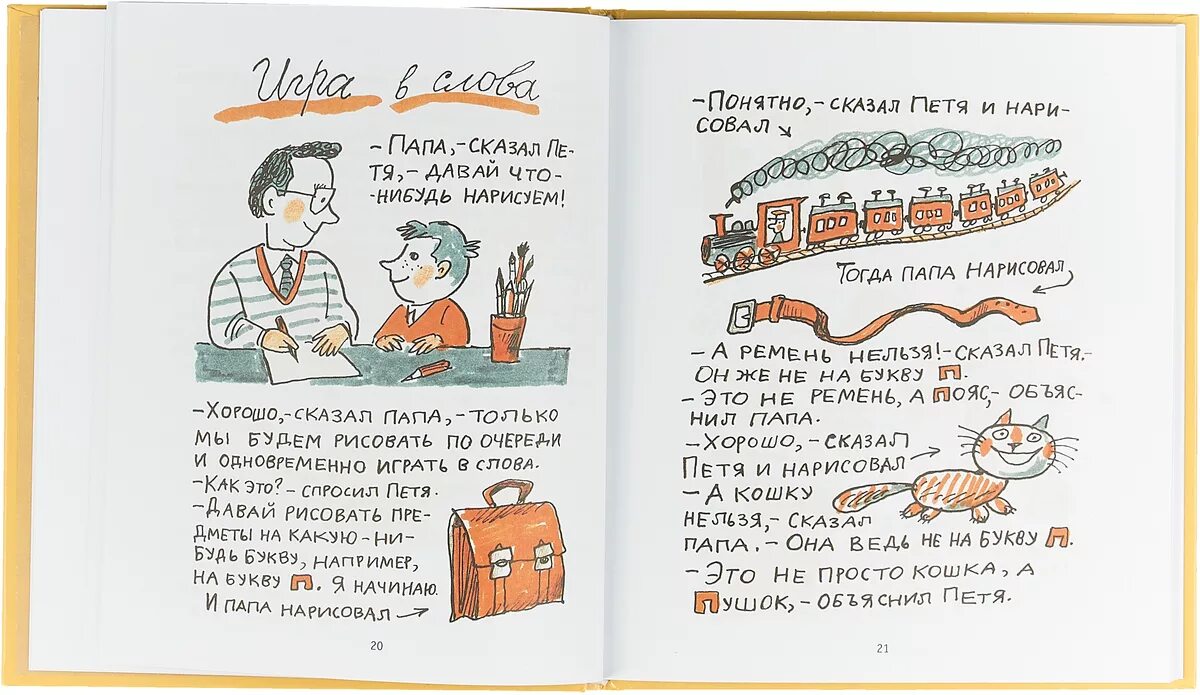 Игра в слова
– Папа, – сказал Пе-
тя, – давай что-
-нибудь нарисуем!
– Хорошо, – сказал папа, – только
мы будем рисовать по очереди
и одновременно играть в слова.
– Как это? – спросил Петя.
– Давай рисовать пре-
дметы на какую-ни-
будь букву, например,
на букву П. Я начинаю.
И папа нарисовал
20
– Понятно, – сказал Петя и нари-
совал
Тогда папа нарисовал
– А ремень нельзя! – сказал Петя. –
Он же не на букву П.
– Это не ремень, а пояс, – объяс-
нил папа.
– Хорошо, – сказал
Петя и нарисовал
– А кошку
нельзя, – сказал
папа. – Она ведь не на букву П.
– Это не просто кошка, а
Пушок, – объяснил Петя.
21